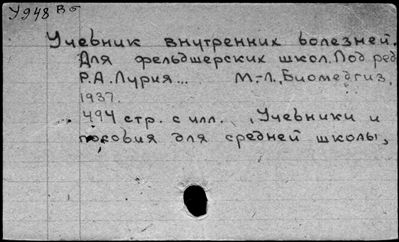 У948 Вб
Учебник внутренних болезней.
Для фельдшерских школ. Под ред.
Р.А. Лурия... М.-Л., Биомедгиз,
1937.
494 стр. с илл. , Учебники и
пособия для средней школы,